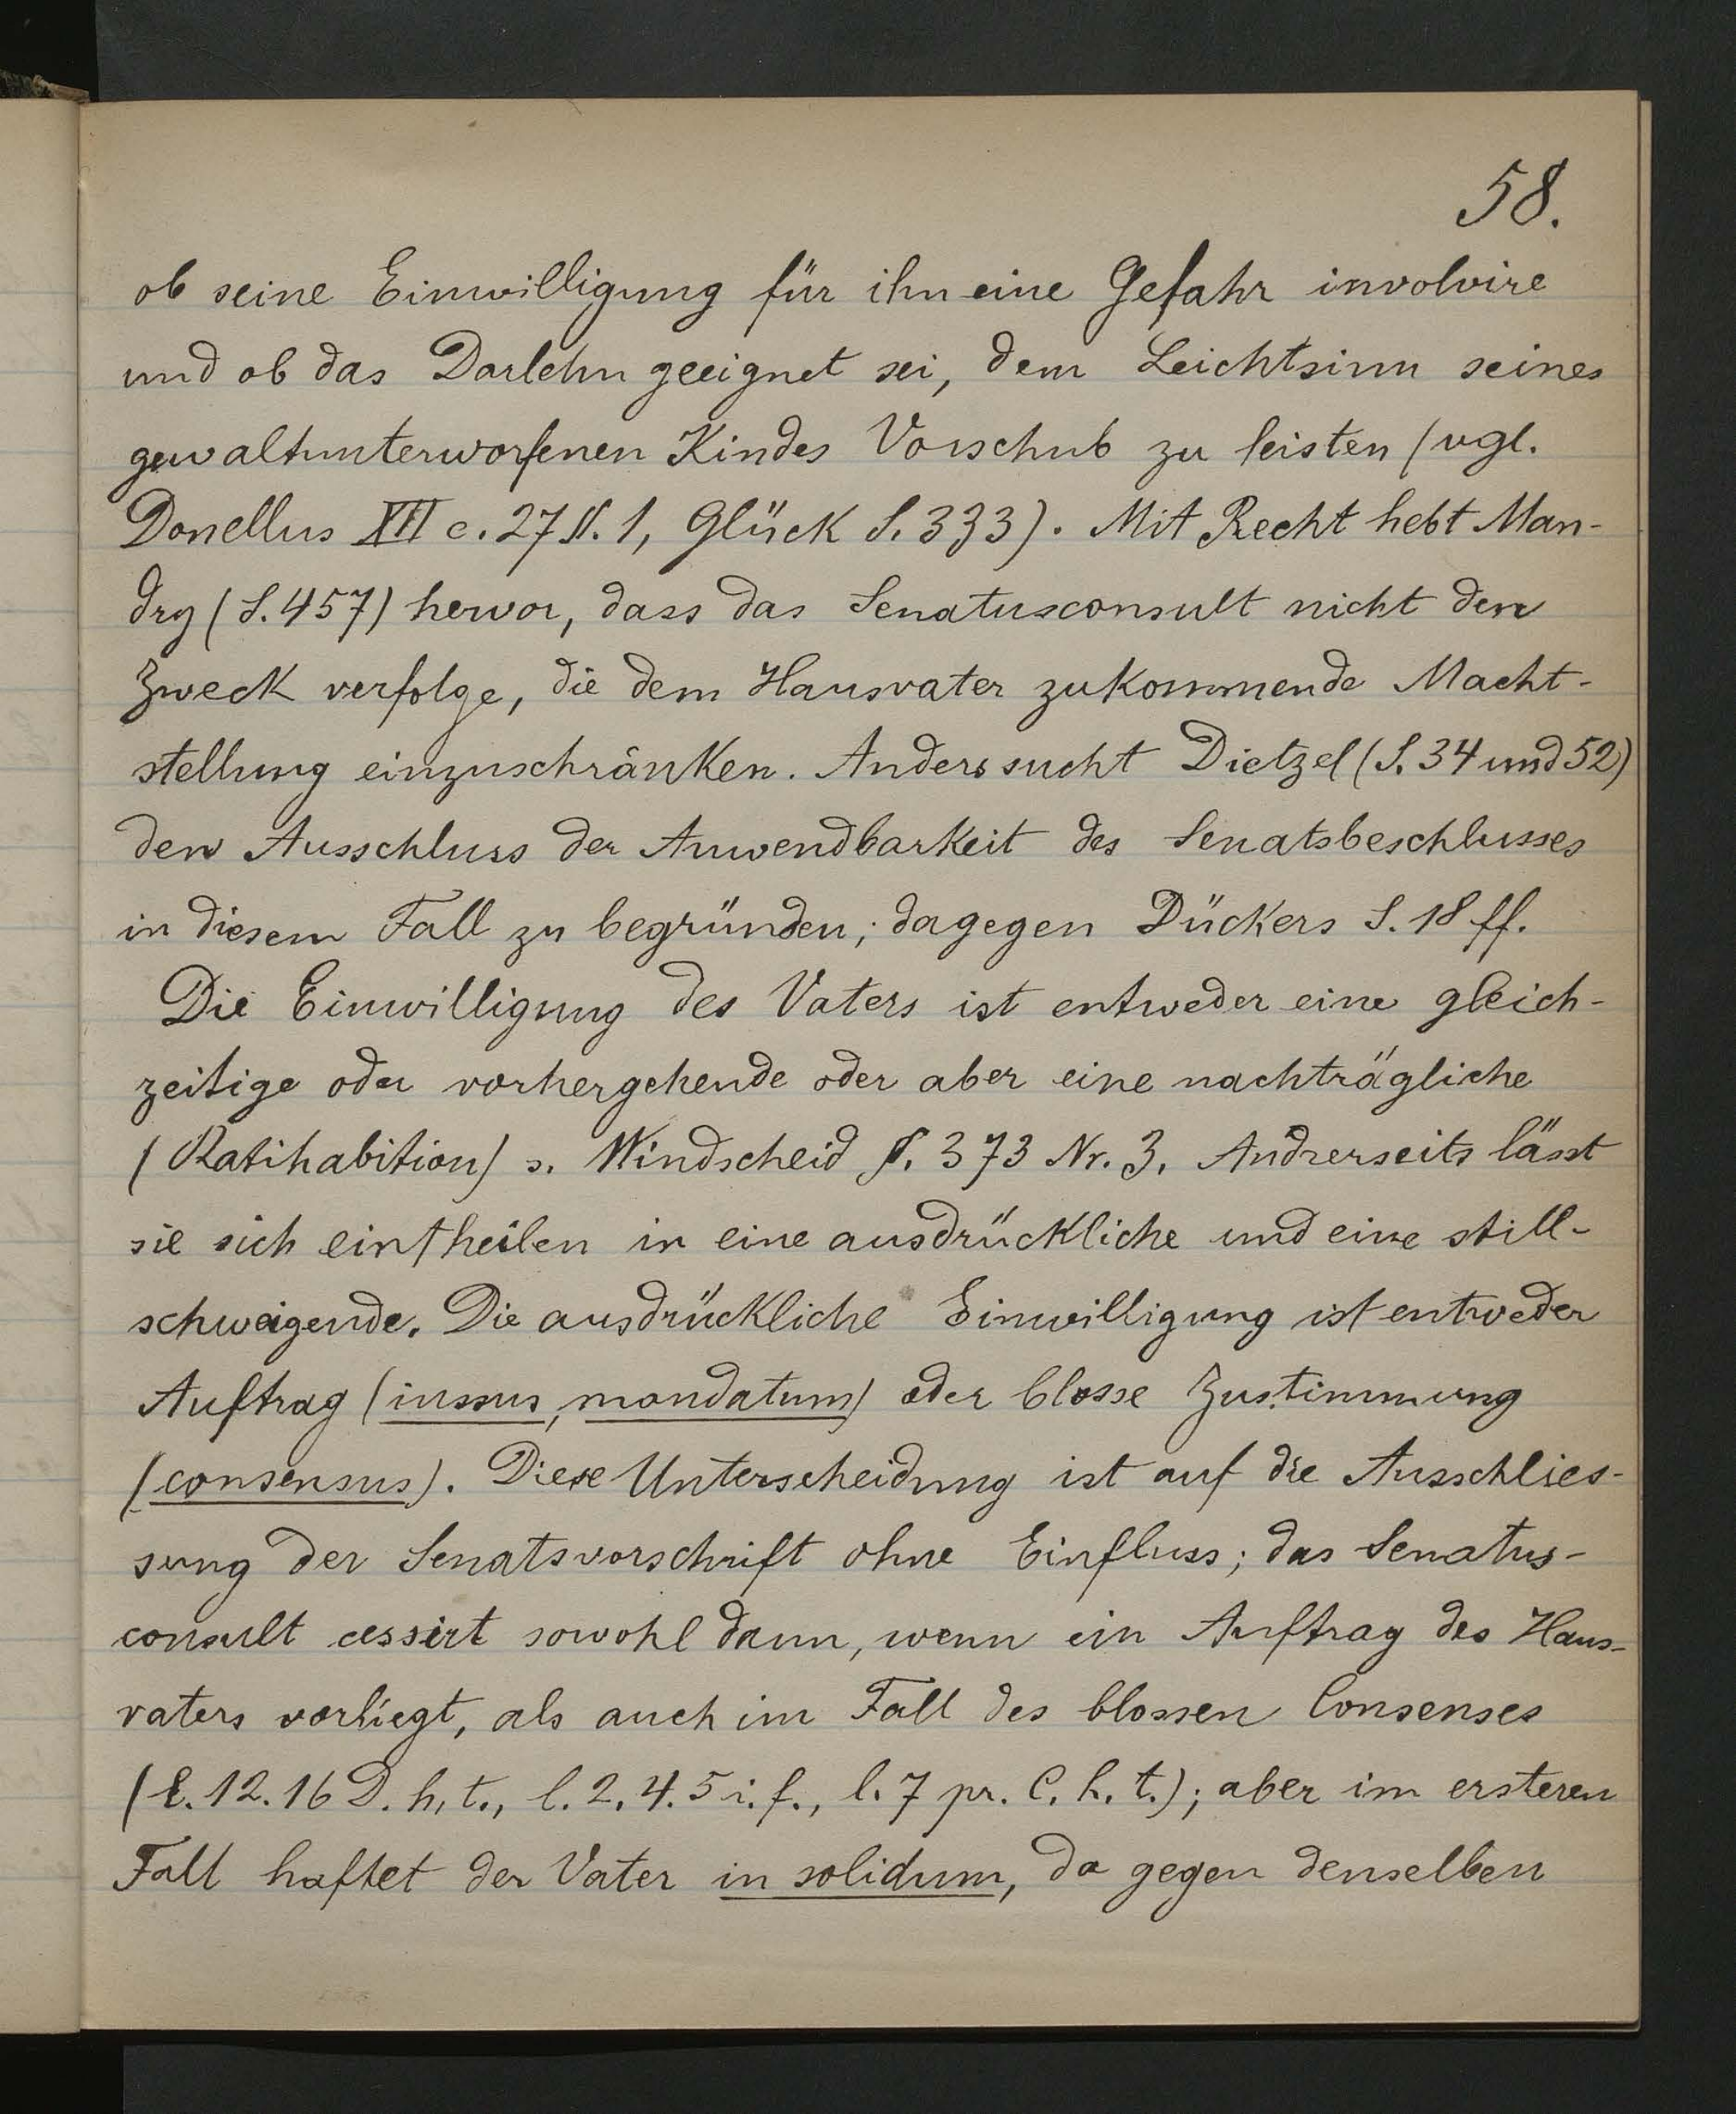 58.
ob seine Einwilligung für ihn eine Gefahr involvire
und ob das Darlehn geeignet sei, dem Leichtsinn seines
gewaltunterworfenen Kindes Vorschub zu leisten (vgl.
Donellus XII c. 27 §. 1, Glück S. 333). Mit Recht hebt Man-
dry (S. 457) hervor, dass das Senatusconsult nicht den
Zweck verfolge, die dem Hausvater zukommende Macht-
stellung einzuschränken. Anders sucht Dietzel (S. 34 und 52)
den Ausschluss der Anwendbarkeit des Senatsbeschlusses
in diesem Fall zu begründen; dagegen Dückers S. 18 ff.
Die Einwilligung des Vaters ist entweder eine gleich-
zeitige oder vorhergehende oder aber eine nachträgliche
(Ratihabition) s. Windscheid §. 373 Nr. 3. Andrerseits lässt
sie sich eintheilen in eine ausdrückliche und eine still-
schweigende. Die ausdrückliche Einwilligung ist entweder
Auftrag (iussus, mandatum) oder blosse Zustimmung
(consensus). Diese Unterscheidung ist auf die Ausschlies-
sung der Senatsvorschrift ohne Einfluss; das Senatus-
consult cessirt sowohl dann, wenn ein Auftrag des Haus-
vaters vorliegt, als auch im Fall des blossen Consenses
(l. 12. 16 D. h. t., l. 2. 4. 5 i. f., l. 7 pr. C. h. t.); aber im ersteren
Fall haftet der Vater in solidum, da gegen denselben